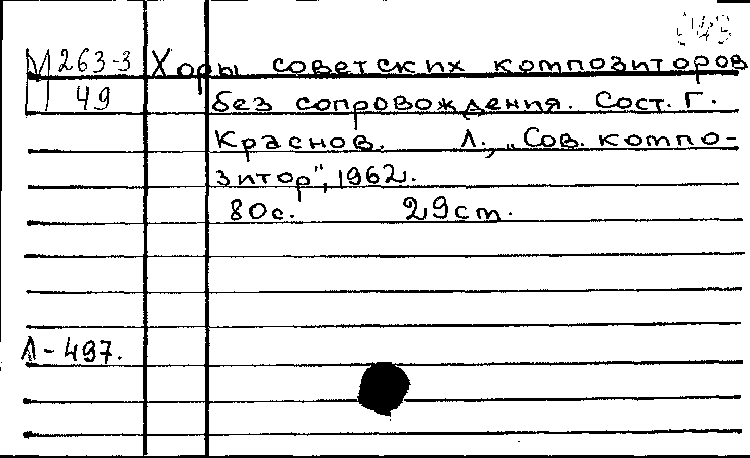 М 263-3 Хоры советских композиторов
49 без сопровождения. Сост. Г.
Краснов. Л., „Сов. компо-
зитор", 1962.
80с. 29cm.
Л-497.